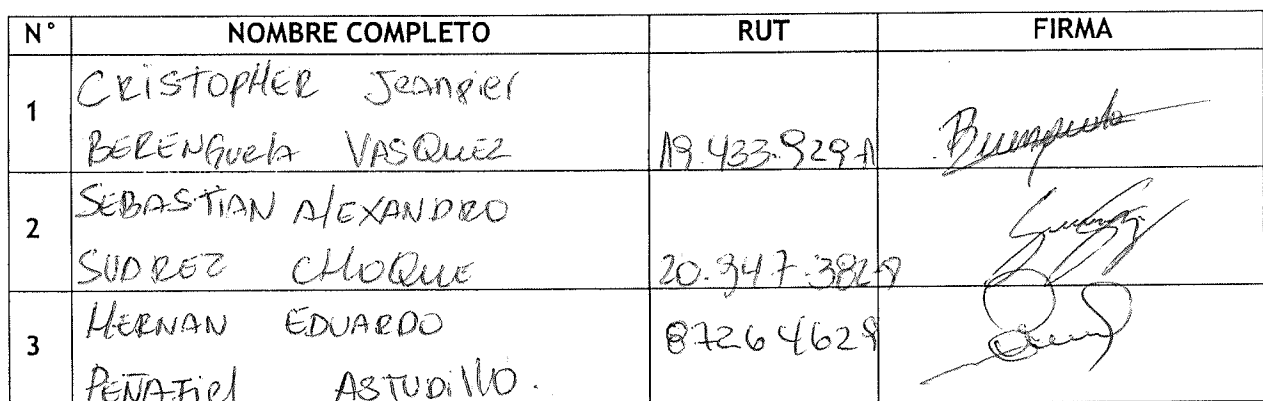 N° NOMBRE COMPLETO RUT FIRMA
1 CRISTOPHER Jeanpier
BERENGUELA VASQUEZ 19.433.929-1
2 SEBASTIAN AlEXANDRO
SUAREZ CHOQUE
3 HERNAN EDUARDO
PEÑAFIEl ASTUDIllO.